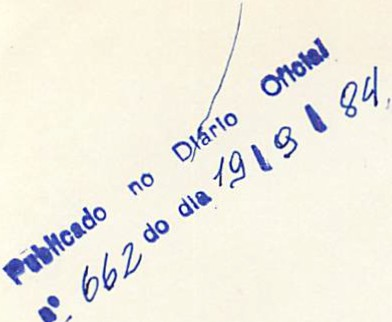 Publicado no Diário Oficial
nº 662 do dia 19 / 9 / 84.